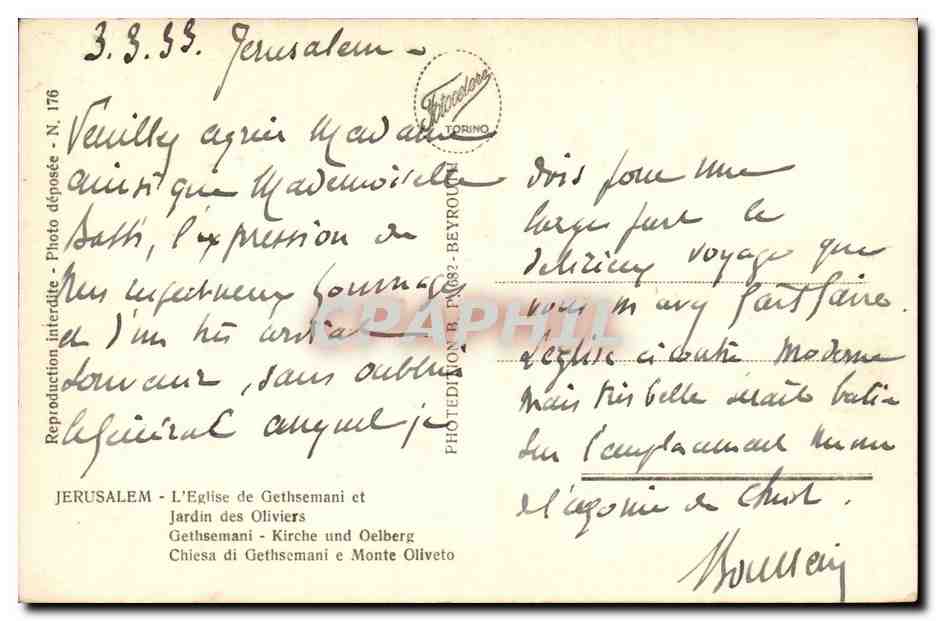 3.3.33. Jerusalem -
Veuillez agréer Madame
ainsi que Mademoiselle
l'expression de
mes respectueux hommages
et d'un très cordial
souvenir, sans oublier
le Général auquel je
dois pour une
large part le
délicieux voyage que
vous m'avez fait faire.
L'église ci contre moderne
mais très belle serait batie
sur l'emplacement même
de l'agonie du Christ.
Fotocelere
TORINO
Reproduction interdite - Photo déposée - N. 176
PHOTEDITION B. P. 682 - BEYROUTH
CPAPHIL
JERUSALEM - L'Eglise de Gethsemani et
Jardin des Oliviers
Gethsemani - Kirche und Oelberg
Chiesa di Gethsemani e Monte Oliveto